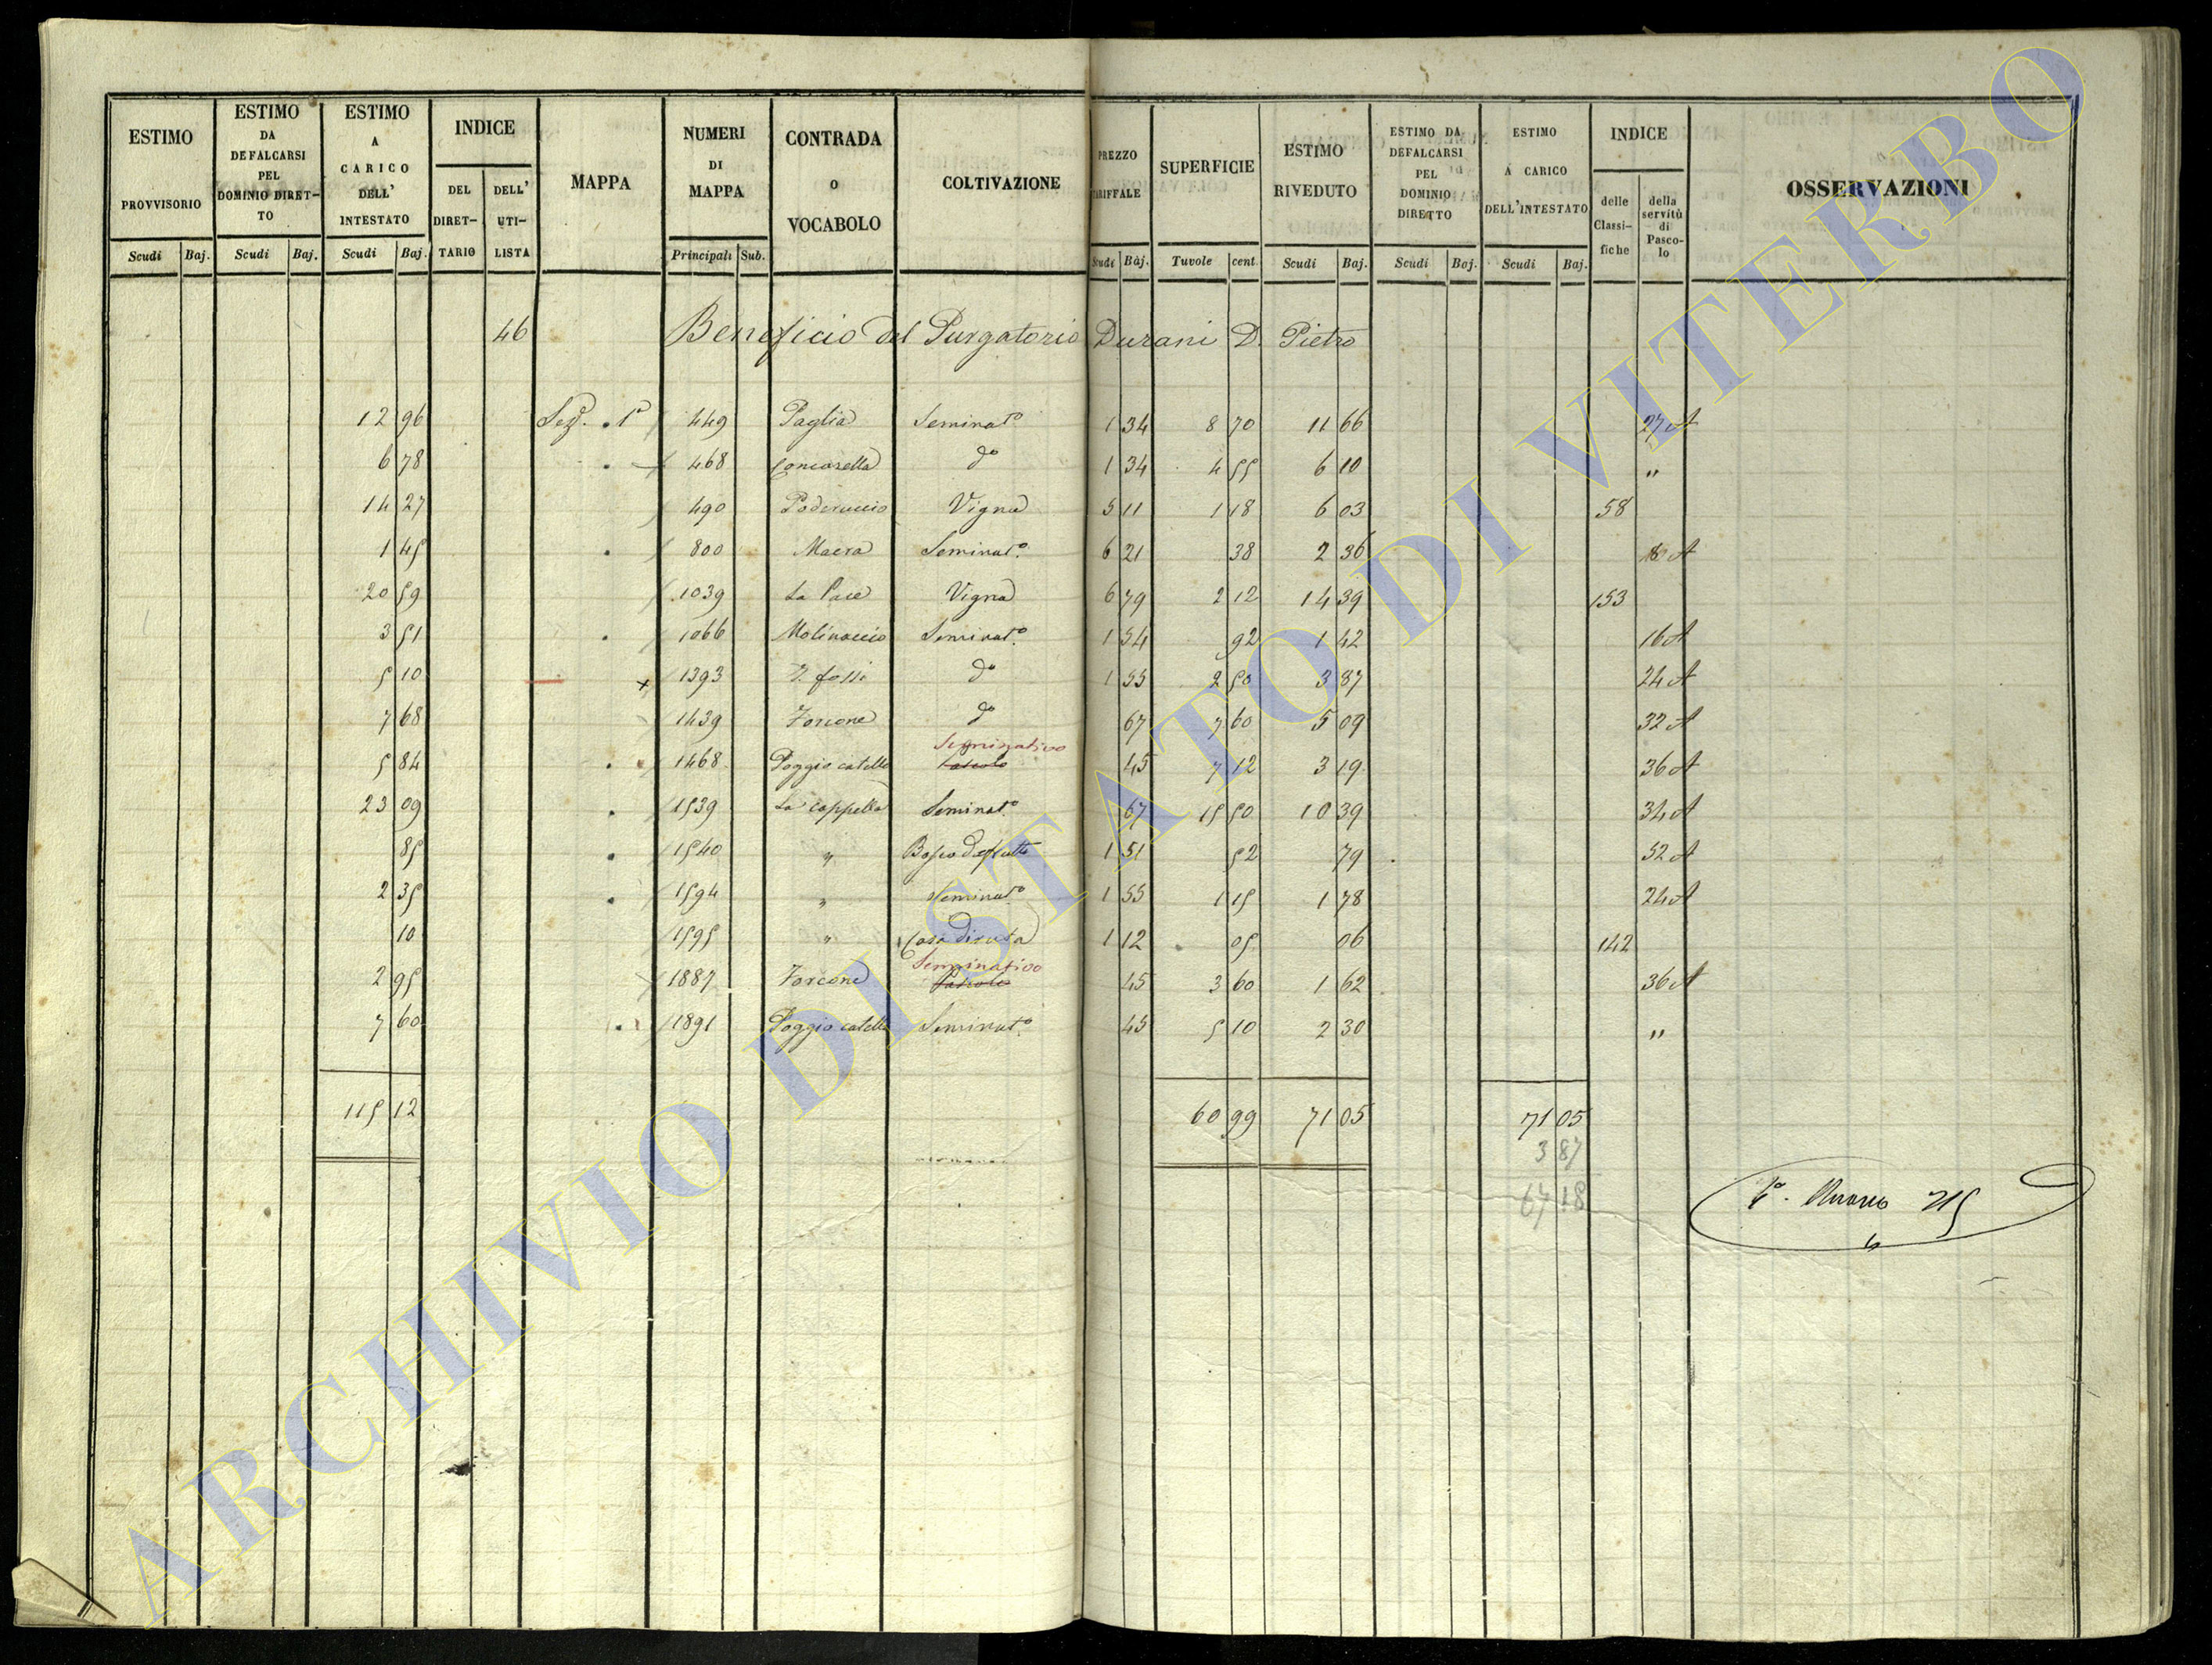 ESTIMO PROVVISORIO Scudi Baj.
ESTIMO DA DEFALCARSI PEL DOMINIO DIRET-TO Scudi Baj.
ESTIMO A CARICO DELL' INTESTATO Scudi Baj.
INDICE DEL DIRET-TARIO DELL' UTI-LISTA
MAPPA
NUMERI DI MAPPA Principali Sub.
CONTRADA O VOCABOLO
COLTIVAZIONE
PREZZO TARIFFALE Scudi Baj.
SUPERFICIE Tavole cent
ESTIMO RIVEDUTO Scudi Baj.
ESTIMO DA DEFALCARSI PEL DOMINIO DIRETTO Scudi Baj.
ESTIMO A CARICO DELL'INTESTATO Scudi Baj.
INDICE delle Classi-fiche della servitù di Pasco-lo
OSSERVAZIONI
46 Beneficio del Purgatorio Durani D. Pietro
12 96 Sez. 1a 449 Paglia Seminato 1 34 8 70 11 66 27 A
6 78 468 do 1 34 4 55 6 10 "
14 27 490 Poderuccio Vigna 5 11 1 18 6 03 58
1 45 800 Macra Seminato. 6 21 38 2 36 A
20 59 1039 La Pace Vigna 6 79 2 12 14 39 153
3 51 1066 Molinaccio Seminato. 1 54 92 1 42 16 A
5 10 x 1393 fossi do 1 55 2 50 3 87 24 A
7 68 1439 Forcone do 67 7 60 5 09 32 A
Seminativo
5 84 1468 Poggio catello Pascolo 45 7 12 3 19 36 A
23 09 1539 La cappella Seminato. 67 15 50 10 39 34 A
85 1540 " Bosco da frutto 1 51 52 79 52 A
2 35 1594 " Seminato. 1 55 1 15 1 78 24 A
10 1595 " Casa diruta 1 12 05 06 142
Seminativo
2 95 1887 Forcone Pascolo 45 3 60 1 62 36 A
7 60 1891 Poggio catello Seminato. 45 5 10 2 30 "
115 12 60 99 71 05 71 05
3 87
67 18
715
ARCHIVIO DI STATO DI VITERBO